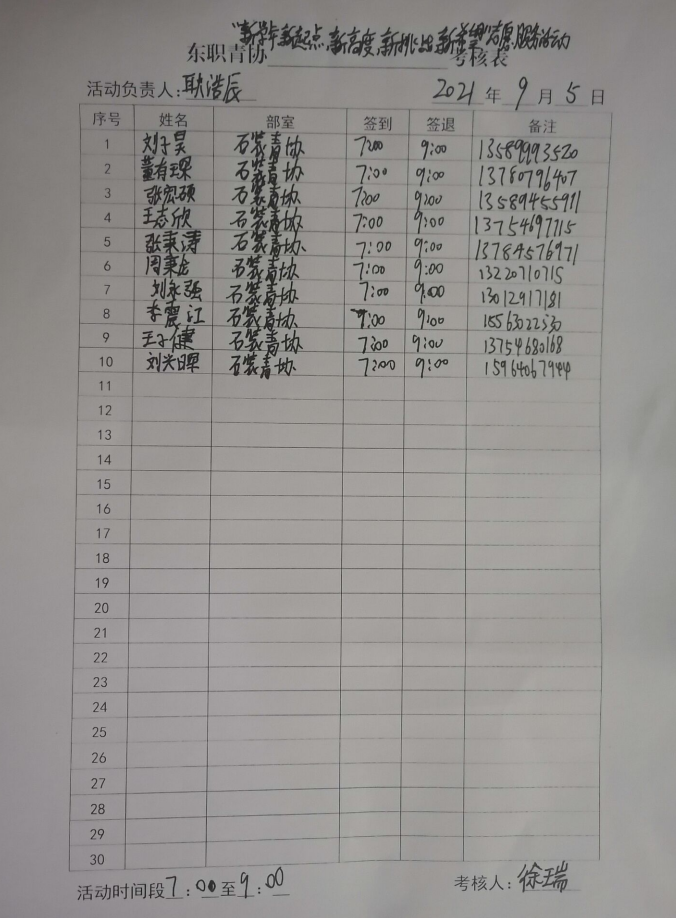 "新学年,新起点,新高度,新挑战,新希望"志愿服务活动
东职青协 考核表
活动负责人:耿浩辰 2021 年 9 月 5 日
序号 姓名 部室 签到 签退 备注
1 刘子昊 石装青协 7:00 9:00 13589993520
2 董有璟 石装青协 7:00 9:00 13780796407
3 张宏硕 石装青协 7:00 9:00 13589455911
4 王志欣 石装青协 7:00 9:00 13754697715
5 张秉涛 石装青协 7:00 9:00 13784576971
6 周秉 石装青协 7:00 9:00 13220710715
7 刘永强 石装青协 7:00 9:00 13012917181
8 李震江 石装青协 9:00 9:00 15563022530
9 王子健 石装青协 7:00 9:00 13754680168
10 刘兴 石装青协 7:00 9:00 15964067944
11
12
13
14
15
16
17
18
19
20
21
22
23
24
25
26
27
28
29
30
活动时间段 7:00 至 9:00 考核人:徐瑞